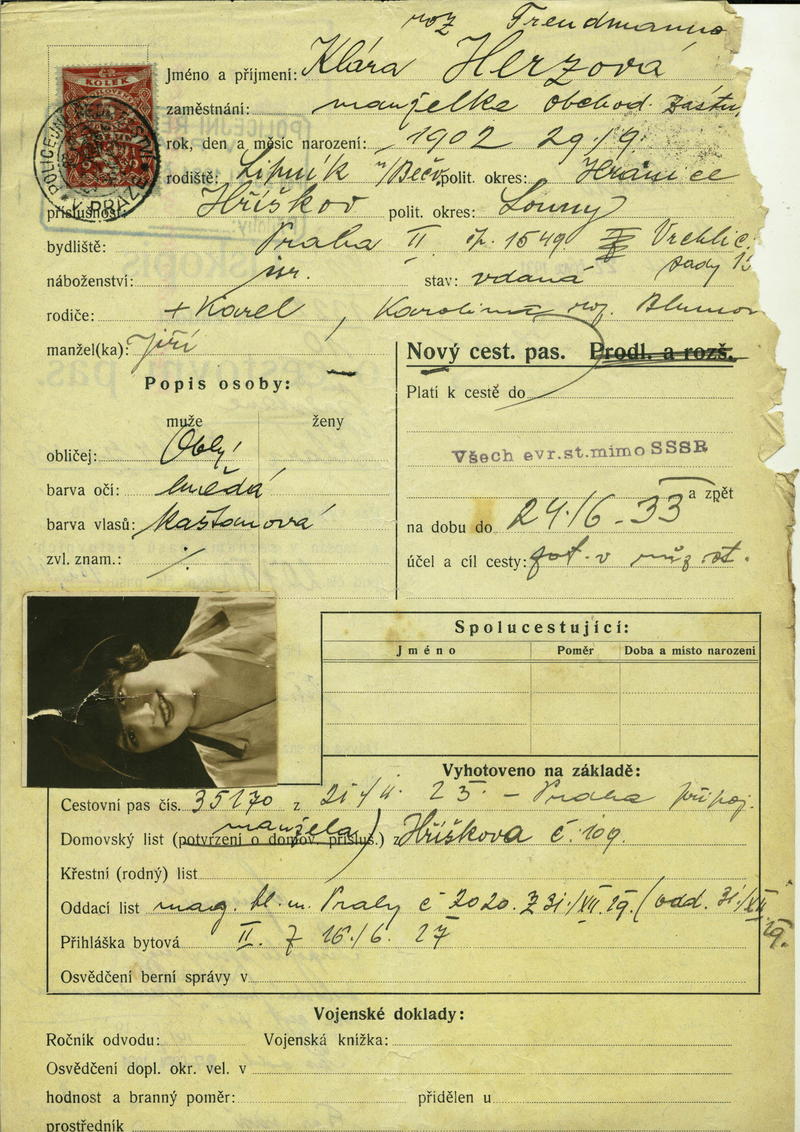 roz Freudmanno
Jméno a příjmení: Klára Herzová
zaměstnání: manželka obchod. zástu,
rok, den a měsíc narození: 1902 29./9.
rodiště: Lipník n/Bečv. polit. okres: Hranice
příslušnost: Hříškov polit. okres: Louny
bydliště: Praha II čp. 1549 Vrchlic.
sady 13
náboženství: isr. stav: vdaná
rodiče: + Karel, Karolina roz. Blumov
manžel(ka): Jiří
KOLEK
POLICEJNÍ
V PRAZE
Nový cest. pas. Prodl. a rozš.
Popis osoby:
Platí k cestě do
muže ženy
obličej: Oblý
Všech evr.st.mimo SSSR
barva očí: hnědá
a zpět
barva vlasů: kaštanová
na dobu do 24./6. 33
zvl. znam.: ·/.
účel a cíl cesty: pot. v různ. st.
Spolucestující:
Jméno Poměr Doba a místo narození
Vyhotoveno na základě:
Cestovní pas čís. 35170 z 21/4. 23. – Praha připoj.
manžela
Domovský list (potvrzení o domov. příslus.) z Hříškova č. 109.
Křestní (rodný) list
Oddací list mag. hl. m. Prahy č 2020. z 31./XII. 29. (odd. 31./XII. 29.
Přihláška bytová II. z 16./6. 27
Osvědčení berní správy v
Vojenské doklady:
Ročník odvodu: Vojenská knížka:
Osvědčení dopl. okr. vel. v
hodnost a branný poměr: přidělen u
prostředník